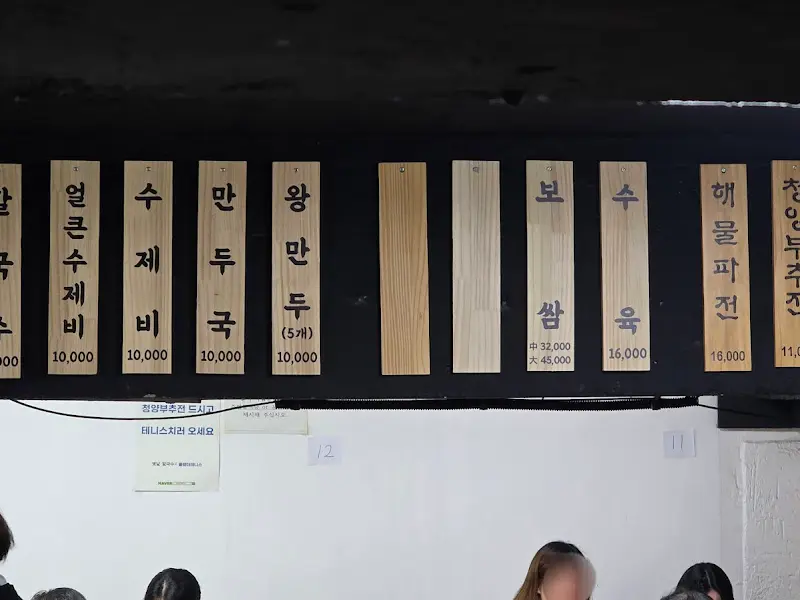 칼국수
000
얼큰수제비
10,000
수제비
10,000
만두국
10,000
왕만두
(5개)
10,000
보쌈
中 32,000
大 45,000
수육
16,000
해물파전
16,000
청양부추전
11,0
청양부추전 드시고
테니스치러 오세요
12
11